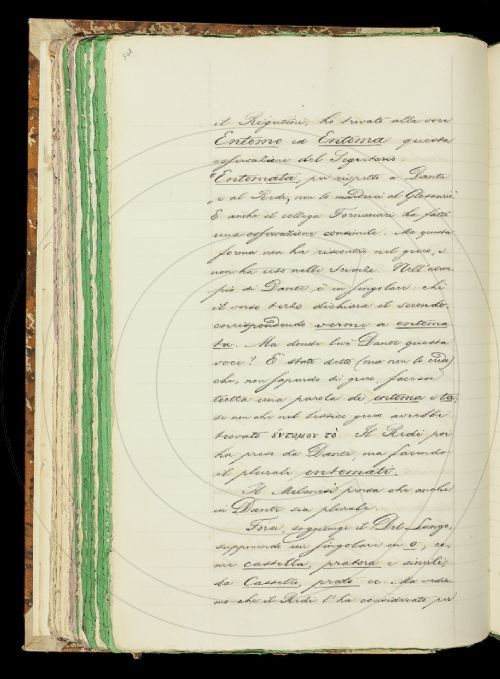 il Rigutini, ha trovato alla voce
Entomo ed Entoma questa
osservazione del Segretario.
"Entomata, per rispetto a Dante
e al Redi, non lo manderei al Glossario"
E anche il collega Tornaciari ha fatto
una osservazione consimile. Ma questa
forma non ha riscontro nel greco, e
non ha uso nelle Scienze. Nell'esem-
pio di Dante è un singolare: chè
il verso terzo dichiara il secondo,
corrispondendo verme a entoma-
ta. Ma donde levò Dante questa
voce? È stato detto (ma non lo credo)
che, non sapendo di greco, facesse
tutta una parola di entoma e ta,
se non che nel lessico greco avrebbe
trovato ἔντομον τό. Il Redi poi
ha preso da Dante, ma facendo
il plurale entomati.
Il Milanesi pensa che anche
in Dante sia plurale.
Forse, soggiunge il Del Lungo,
supponendo un singolare in o, co-
me castella, pratora e simili,
da Castello, prato ec. Ma vedia-
mo che il Redi l'ha considerato per